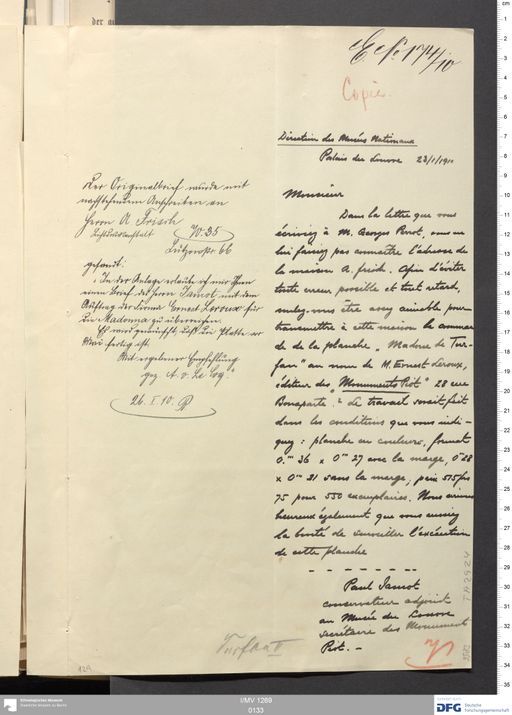 E No 174/10
Copie.
Direction des Musées Nationaux
Palais du Louvre 23/1/1910
Monsieur
Dans la lettre que vous
écriviez à M. Georges Perrot, vous ne
lui faisiez pas connaître l'adresse de
la maison A. Frisch. Afin d'éviter
toute erreur possible et tout retard,
voulez-vous être assez aimable pour
transmettre à cette maison la comman
de de la planche „Madone de Tur-
fan" au nom de M. Ernest Leroux,
éditeur des "Monuments Piot" 28 rue
Bonaparte. Le travail serait fait
dans les conditions que vous indi-
quez: planche en couleurs, format
0.m 36 x 0m 27 avec la marge, 0m28
x 0m 21 sans la marge, prix 515 frs
75 pour 550 exemplaires. Nous serions
heureux également que vous eussiez
la bonté de surveiller l'exécution
de cette planche
Paul Jamot
conservateur adjoint
au Musée du Louvre
secrétaire des Monument
Piot. -
Der Originalbrief wurde mit
nachstehendem Anschreiben an
Herrn A Frisch
Lichtdruckanstalt W. 35
Lützowstr 66
gesandt:
„In der Anlage erlaube ich mir Ihnen
einen Brief des Herrn Jamot mit dem
Auftrag der Firma Ernest Leroux für
die Madonna zu überreichen.
Es wird gewünscht, daß die Platte vor
Mai fertig ist.
Mit ergebener Empfehlung
gez. A. v. Le Coq."
26. I. 10.
Turfan II
129
TA 2924
I/MV 1269
0133
Ethnologisches Museum
Staatliche Museen zu Berlin
DFG Deutsche
Forschungsgemeinschaft
cm
1
2
3
4
5
6
7
8
9
10
11
12
13
14
15
16
17
18
19
20
21
22
23
24
25
26
27
28
29
30
31
32
33
34
35